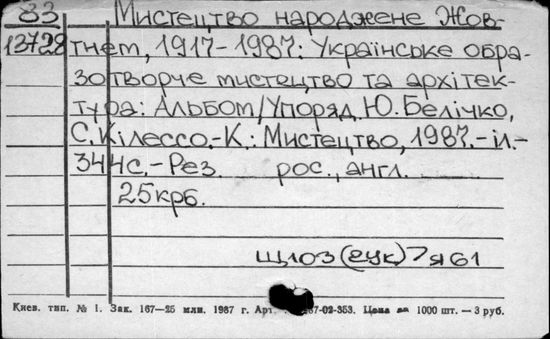 83 Мистецтво народжене Жов-
13728 тнем, 1917-1987: Українське обра-
зотворче мистецтво та архітек-
тура: Альбом/Упоряд. Ю.Белічко,
С.Кілессо.-К.: Мистецтво, 1987.-іл.-
344с.-Рез. рос., англ.
25крб.
Щ103(2УК)7я61
Киев. тип. № 1. Зак. 167—25 млн. 1987 г. Арт. 67-02-353. Цена за 1000 шт. — 3 руб.